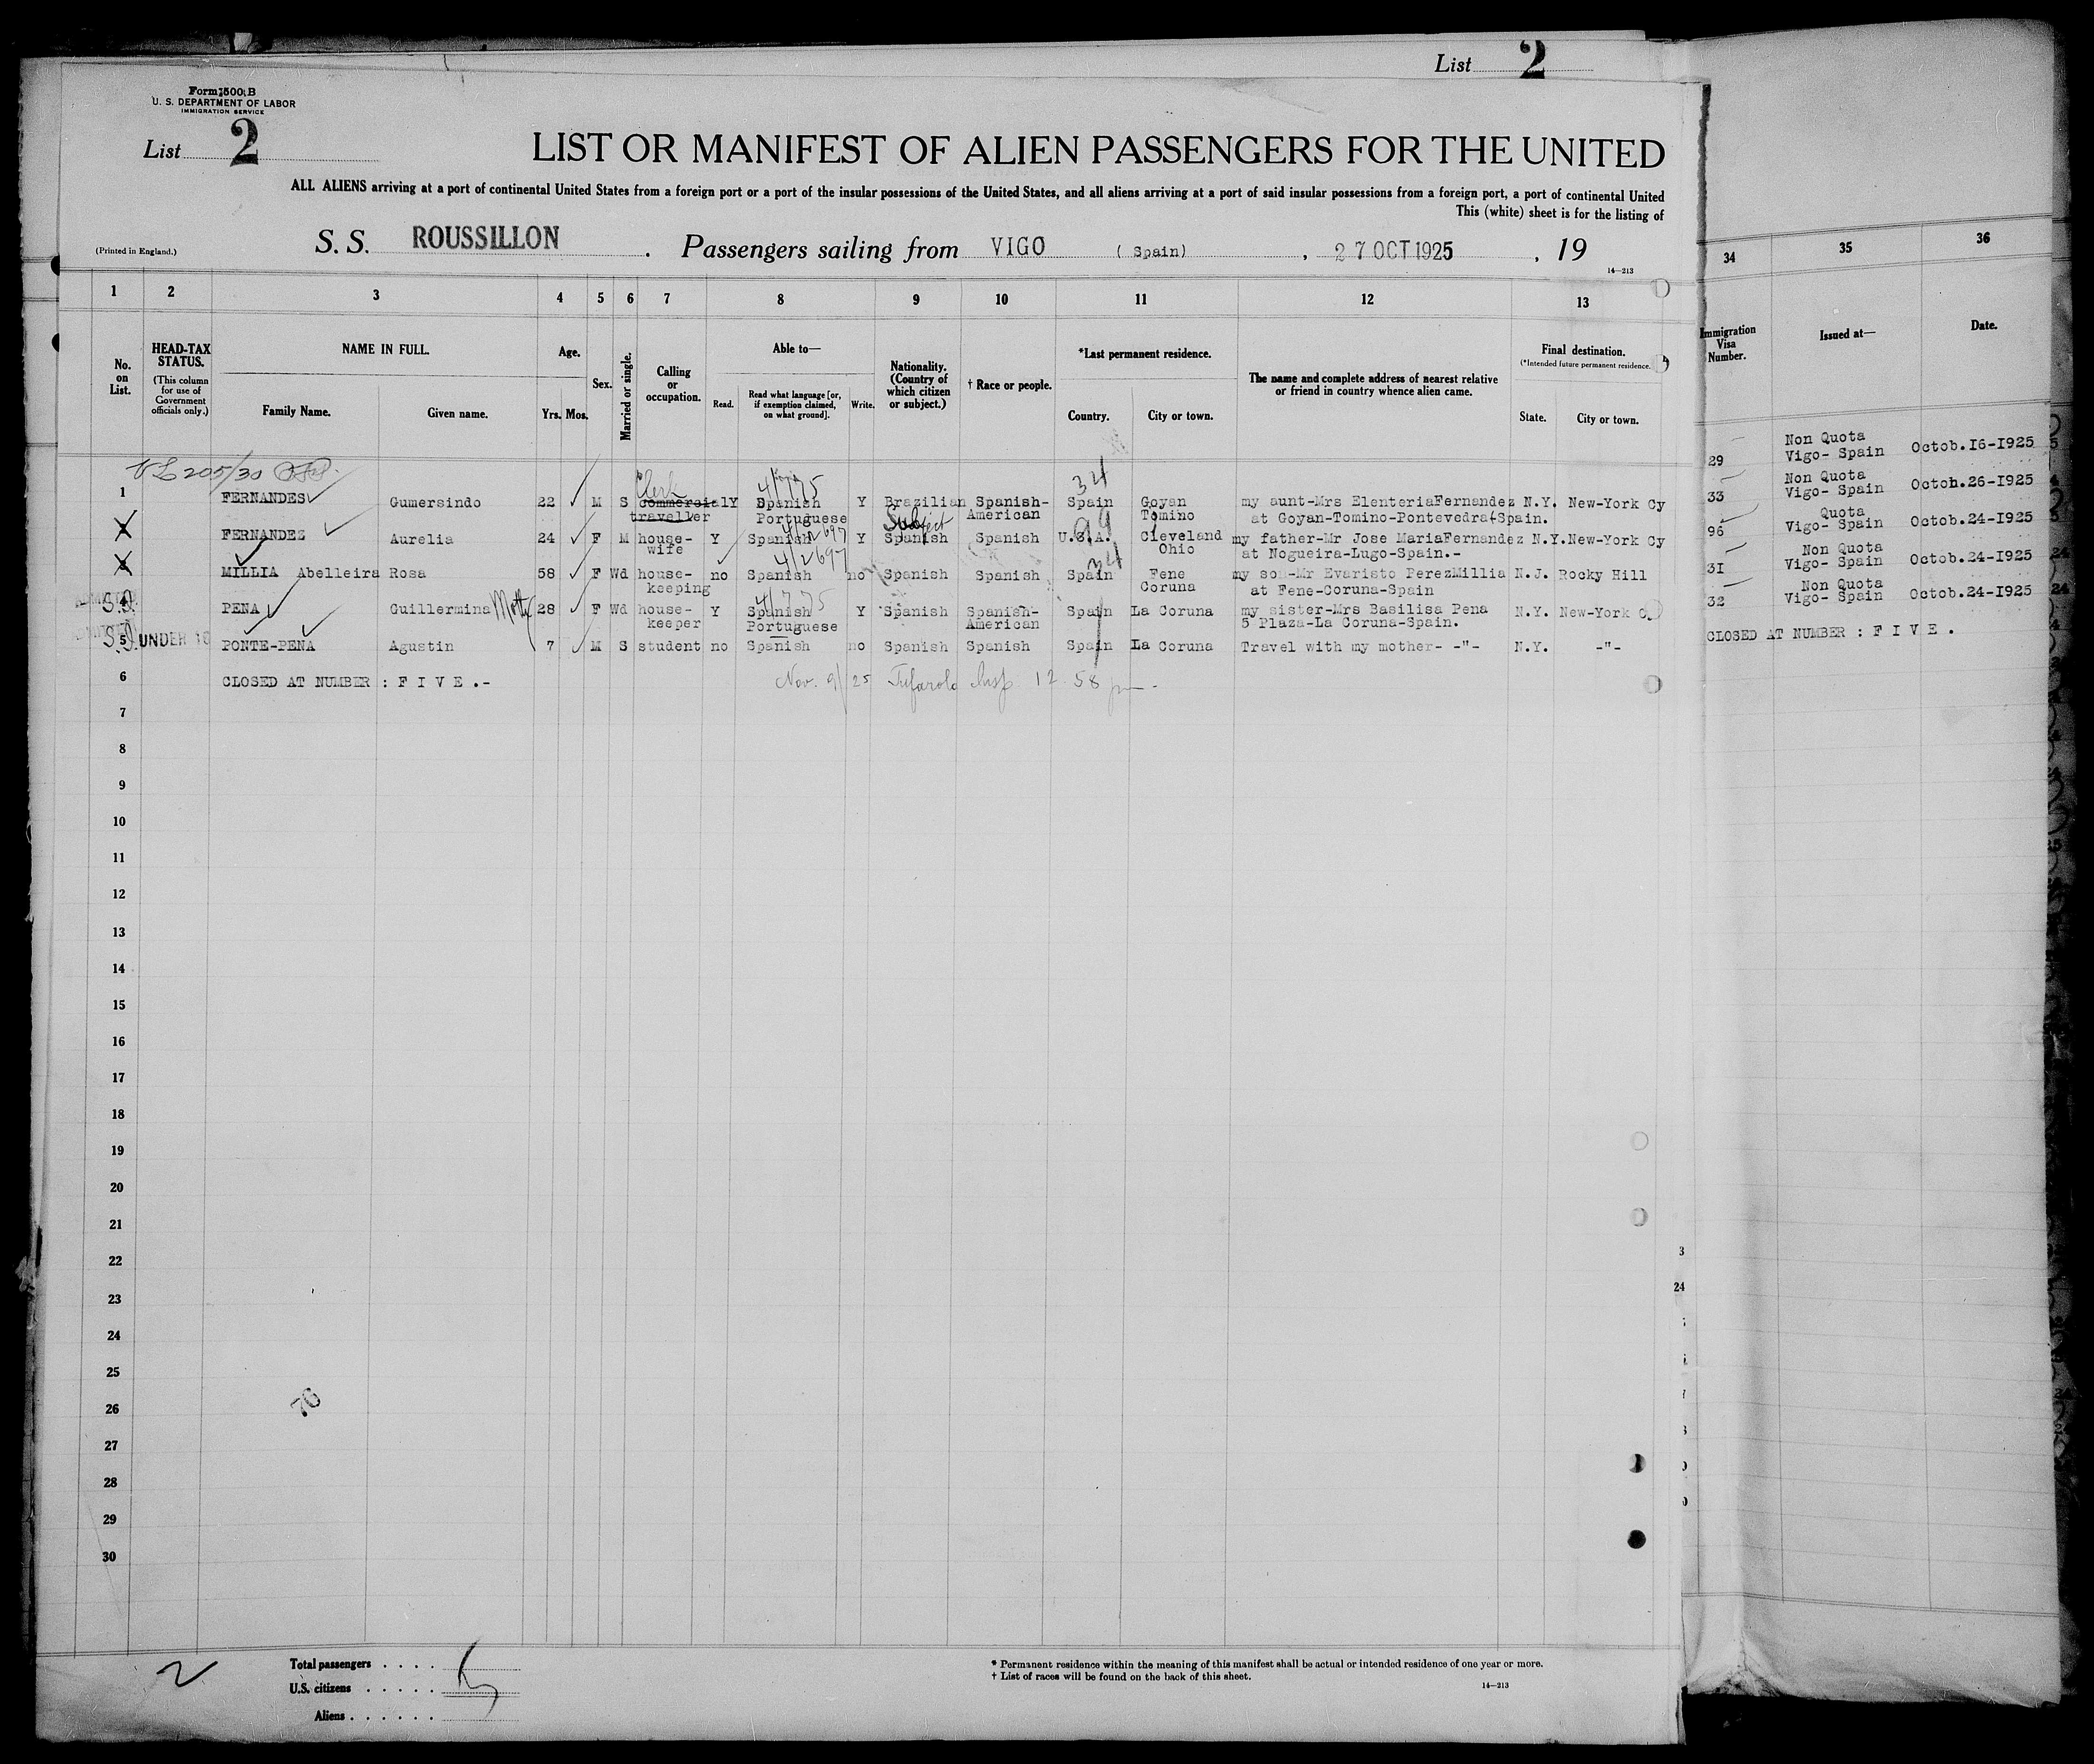 List 2
Form 500 B
U. S. DEPARTMENT OF LABOR
IMMIGRATION SERVICE
List 2
LIST OR MANIFEST OF ALIEN PASSENGERS FOR THE UNITED
ALL ALIENS arriving at a port of continental United States from a foreign port or a port of the insular possessions of the United States, and all aliens arriving at a port of said insular possessions from a foreign port, a port of continental United
This (white) sheet is for the listing of
(Printed in England.)
S. S. ROUSSILLON . Passengers sailing from VIGO ( Spain) , 27 OCT 1925 , 19
14—213
1 2 3 4 5 6 7 8 9 10 11 12 13 34 35 36
No. on List.
HEAD-TAX STATUS.
(This column for use of Government officials only.)
NAME IN FULL.
Family Name. Given name.
Age.
Yrs. Mos.
Sex.
Married or single.
Calling or occupation.
Able to—
Read. Read what language [or, if exemption claimed, on what ground]. Write.
Nationality. (Country of which citizen or subject.)
† Race or people.
*Last permanent residence.
Country. City or town.
The name and complete address of nearest relative or friend in country whence alien came.
Final destination.
(*Intended future permanent residence.)
State. City or town.
Immigration Visa Number.
Issued at—
Date.
205/30
Clerk 4/775 34
1 FERNANDES Gumersindo 22 M S commercial Y Spanish Y Brazilian Spanish- Spain Goyan my aunt-Mrs ElenteriaFernandez N.Y. New-York Cy
traveller Portuguese Subject American Tomino at Goyan-Tomino-Pontevedra-Spain.
4/2697 99
FERNANDEZ Aurelia 24 F M house- Y Spanish Y Spanish Spanish U.S.A. Cleveland my father-Mr Jose MariaFernandez N.Y. New-York Cy
wife Ohio at Nogueira-Lugo-Spain.-
4/2697 34
MILLIA Abelleira Rosa 58 F Wd house- no Spanish no Spanish Spanish Spain Fene my son-Mr Evaristo PerezMillia N.J. Rocky Hill
keeping Coruna at Fene-Coruna-Spain
4/775
S.I. PENA Guillermina 28 F Wd house- Y Spanish Y Spanish Spanish- Spain La Coruna my sister-Mrs Basilisa Pena N.Y. New-York C
keeper Portuguese American 5 Plaza-La Coruna-Spain.
S.I. 5 UNDER 16 PONTE-PENA Agustin 7 M S student no Spanish no Spanish Spanish Spain La Coruna Travel with my mother- -"- N.Y. -"-
6 CLOSED AT NUMBER : F I V E .- Nov. 9/25 Insp 12 58 pm-
7
8
9
10
11
12
13
14
15
16
17
18
19
20
21
22
23
24
25
26
27
28
29
30
76
29 Non Quota
Vigo- Spain Octob.16-1925
33 Non Quota
Vigo- Spain Octob.26-1925
96 Quota
Vigo- Spain Octob.24-1925
31 Non Quota
Vigo- Spain Octob.24-1925
32 Non Quota
Vigo- Spain Octob.24-1925
CLOSED AT NUMBER : F I V E .
3
24
2
Total passengers . . . .
U.S. citizens . . . . .
Aliens . . . . . .
* Permanent residence within the meaning of this manifest shall be actual or intended residence of one year or more.
† List of races will be found on the back of this sheet.
14—213